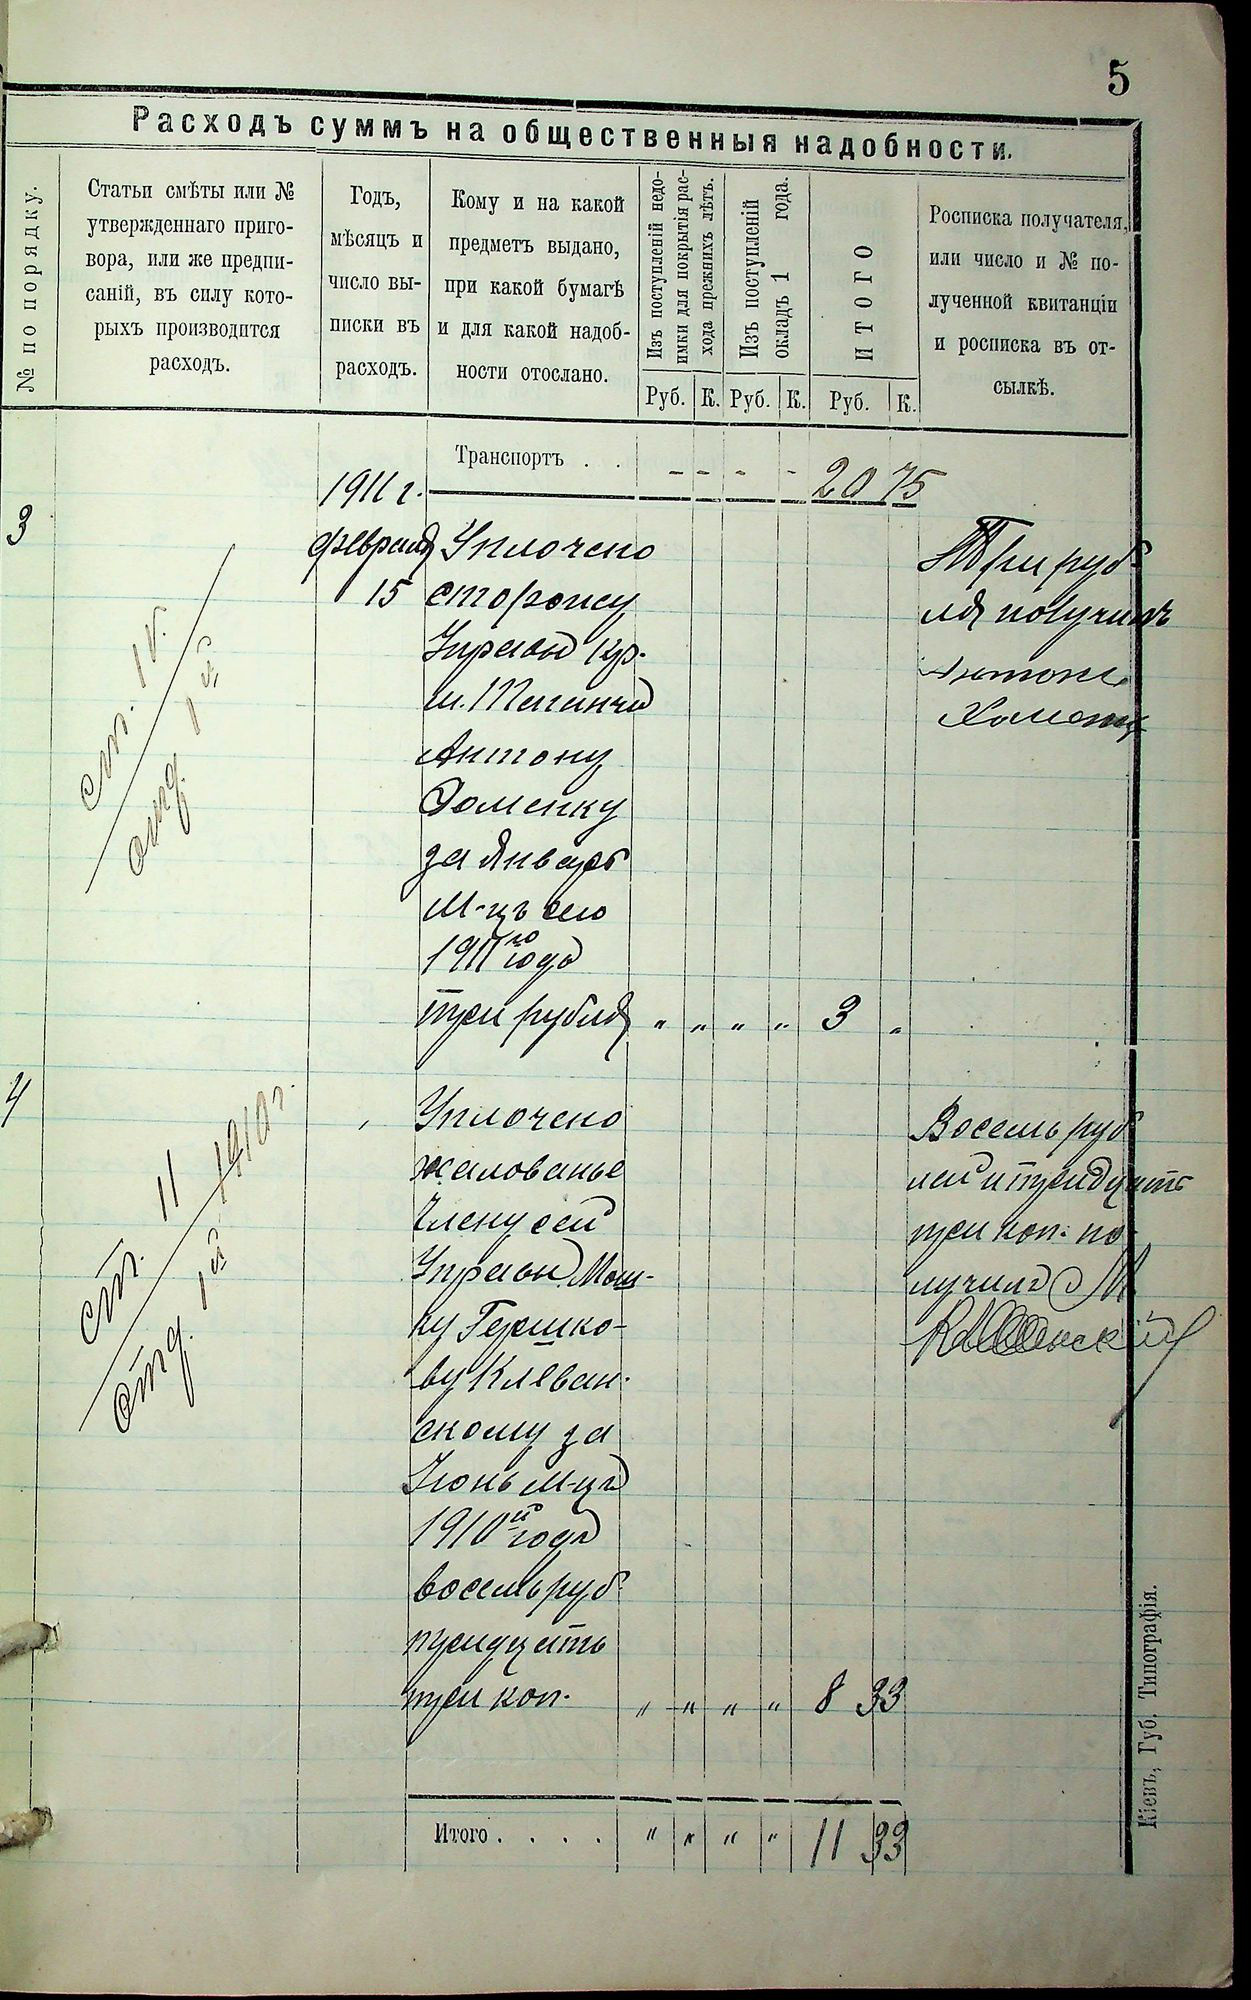 5
Расходъ суммъ на общественныя надобности.
№ по порядку.
Статьи смѣты или №
утвержденнаго приго-
вора, или же предпи-
саній, въ силу кото-
рыхъ производится
расходъ.
Годъ,
мѣсяцъ и
число вы-
писки въ
расходъ.
Кому и на какой
предметъ выдано,
при какой бумагѣ
и для какой надоб-
ности отослано.
Изъ поступленій недо-
имки для покрытія рас-
хода прежнихъ лѣтъ.
Изъ поступленій
окладъ 1 года.
ИТОГО
Росписка получателя,
или число и № по-
лученной квитанціи
и росписка въ от-
сылкѣ.
Руб. К. Руб. К. Руб. К.
Транспортъ . . - - - - 20 75
1911 г.
3
февраля
15
ст. IV.
отд. 1й
Уплочено
сторожу
Управы кр.
м.
Антону
Хоменку
за Январь
м-цъ сего
1911го года
три рубля " " " " 3 "
Три руб-
ля получилъ
Антонъ
Хоменко
4
ст. II 1910 г.
отд. 1й
Уплочено
жалованье
Члену сей
Управы Мош-
ку Гершко-
ву Клеван-
скому за
Іюнь м-цъ
1910го года
восемь руб.
тридцать
три коп. " " " " 8 33
Восемь руб
лей и тридцать
три коп. по-
лучилъ М
Итого . . . . " " " " 11 33
Кіевъ, Губ. Типографія.